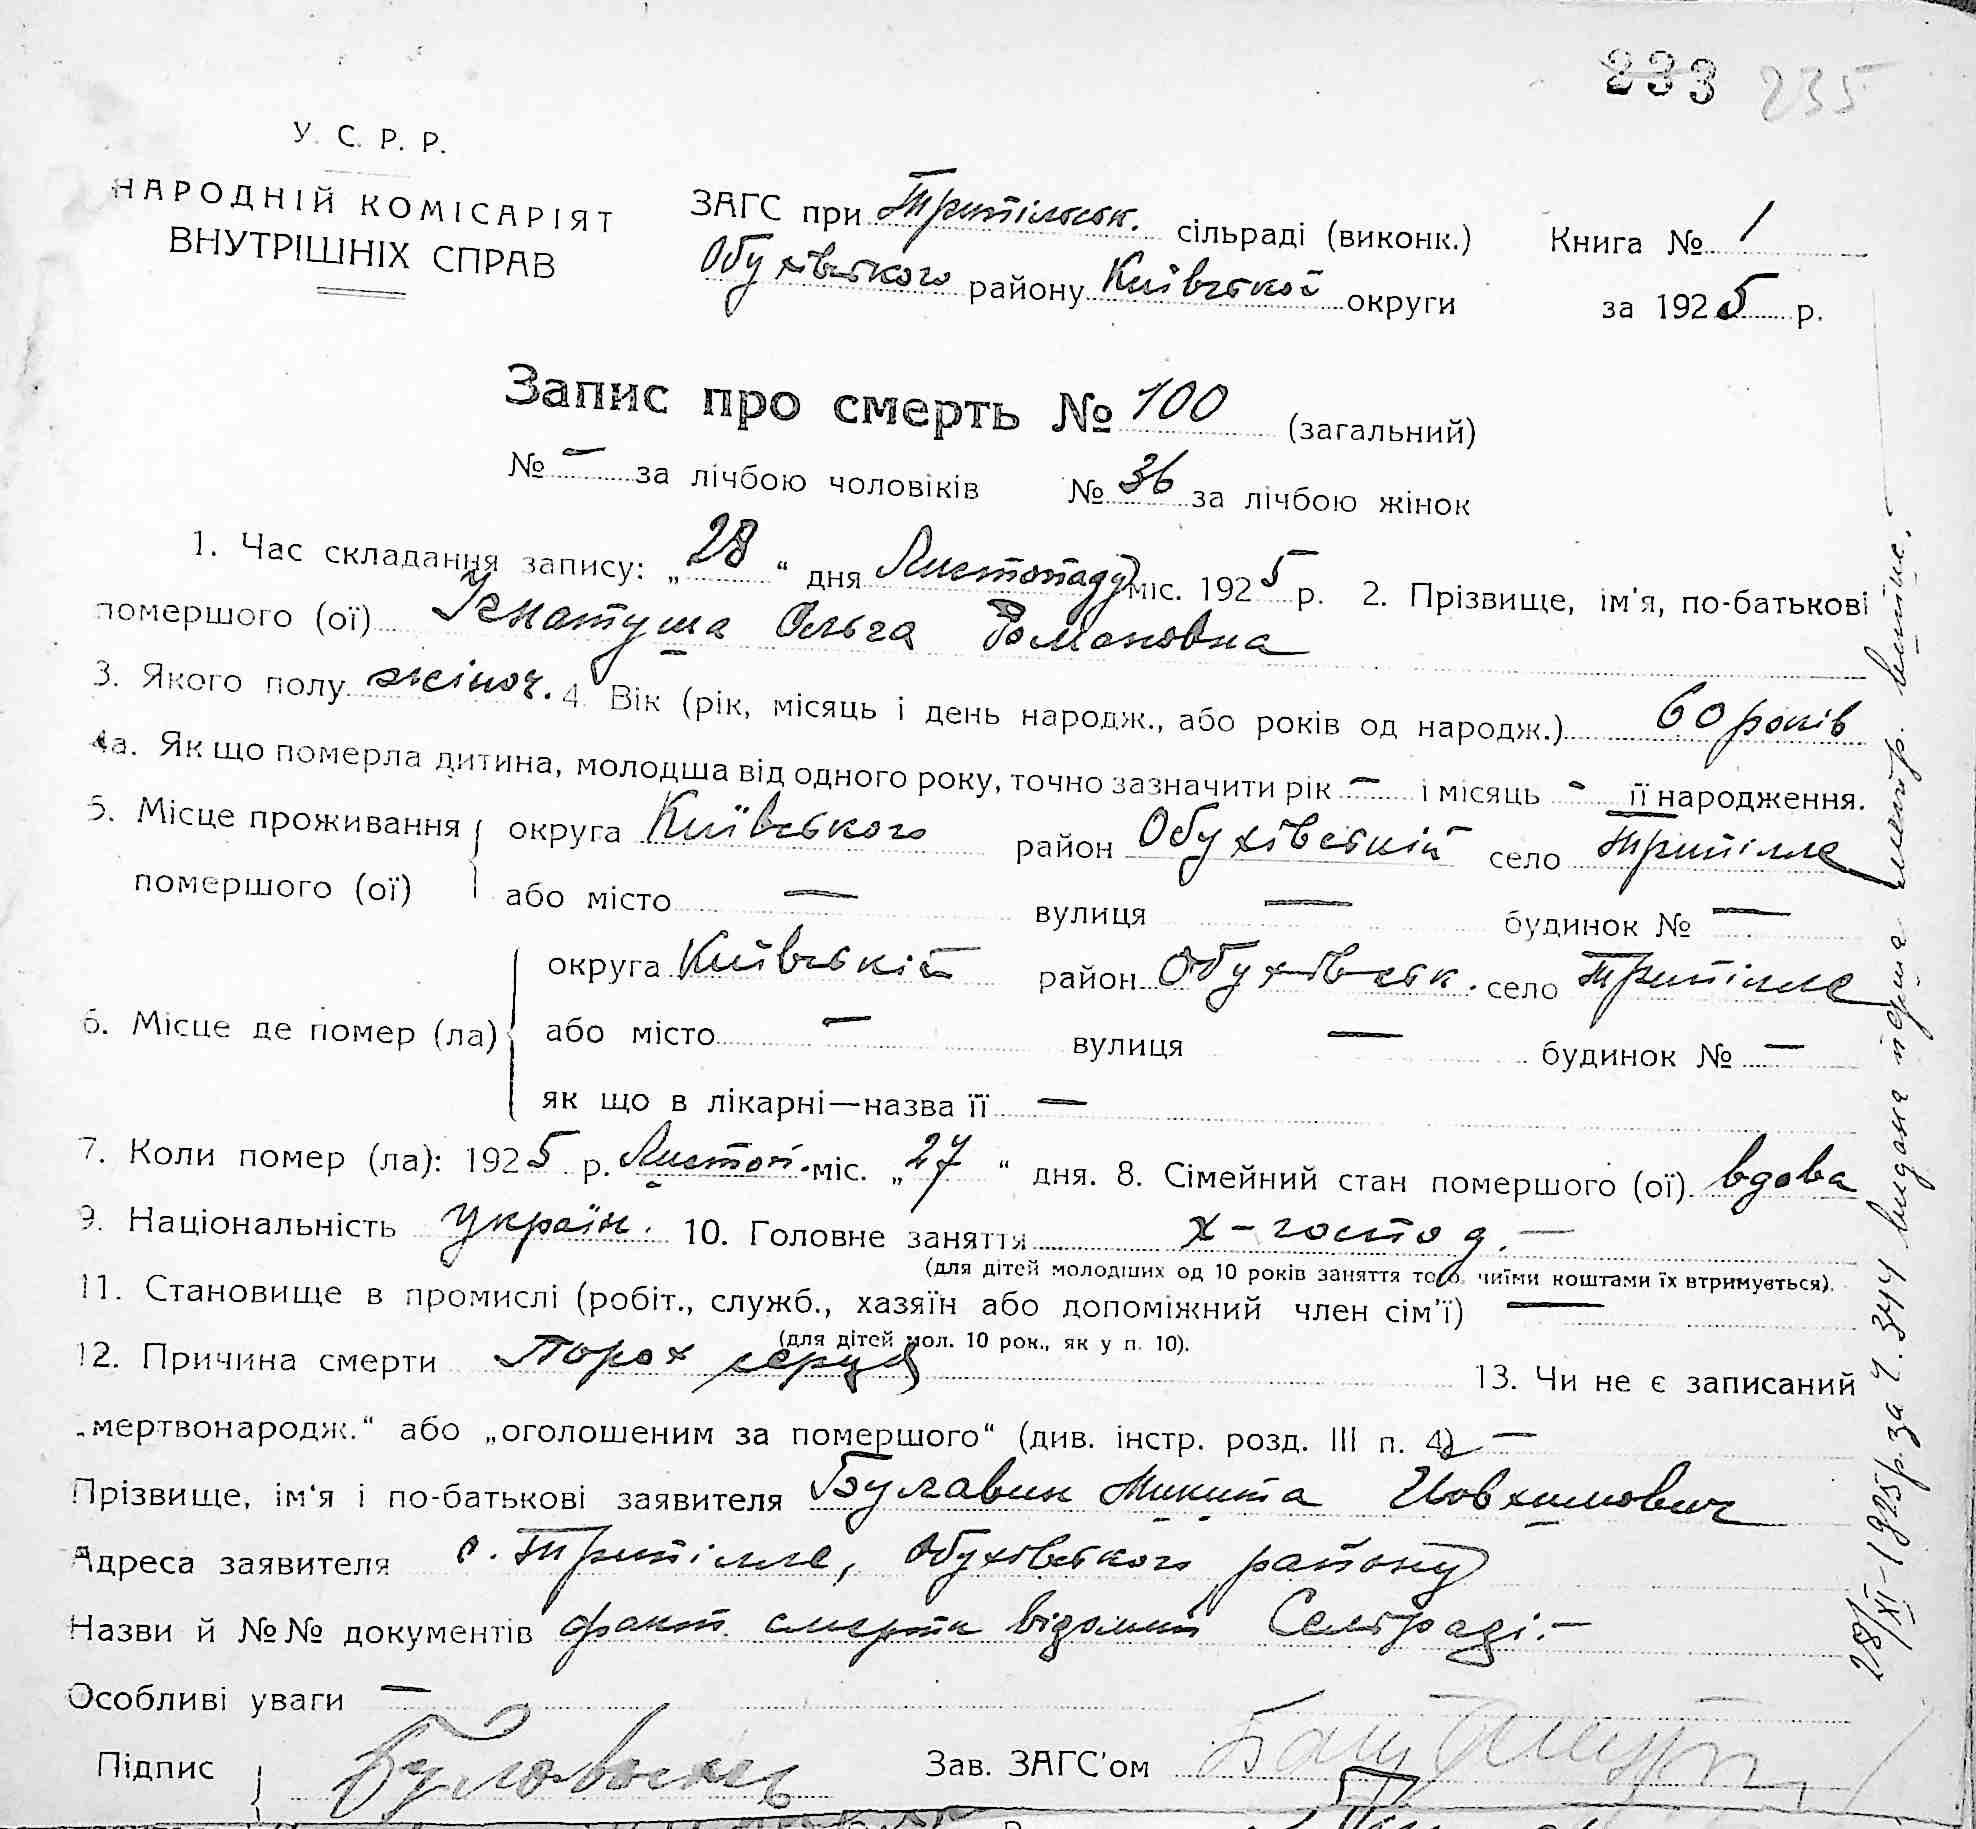 233 235
У. С. Р. Р.
НАРОДНІЙ КОМІСАРІЯТ
ВНУТРІШНІХ СПРАВ
ЗАГС при Трипільськ. сільраді (виконк.) Книга № 1
Обухівського району Київської округи за 1925 р.
Запис про смерть № 100 (загальний)
№ — за лічбою чоловіків № 36 за лічбою жінок
1. Час складання запису: „28“ дня Листопаду міс. 1925 р. 2. Прізвище, ім'я, по-батькові
помершого (ої) Ігнатуша Ольга Романовна
3. Якого полу жіноч. 4. Вік (рік, місяць і день народж., або років од народж.) 60 років
4а. Як що померла дитина, молодша від одного року, точно зазначити рік — і місяць - її народження.
5. Місце проживання округа Київського район Обухівській село Трипілле
помершого (ої) або місто — вулиця — будинок № —
округа Київській район Обухівськ. село Трипілле
6. Місце де помер (ла) або місто — вулиця — будинок № —
як що в лікарні—назва її —
7. Коли помер (ла): 1925 р. Листоп. міс. „27“ дня. 8. Сімейний стан помершого (ої) вдова
9. Національність україн. 10. Головне заняття х-господ. —
(для дітей молодших од 10 років заняття того, чиїми коштами їх втримується).
11. Становище в промислі (робіт., служб., хазяїн або допоміжний член сім'ї) —
(для дітей мол. 10 рок., як у п. 10).
12. Причина смерти Порок серця 13. Чи не є записаний
„мертвонародж.“ або „оголошеним за помершого“ (див. інстр. розд. III п. 4) —
Прізвище, ім'я і по-батькові заявителя Булавин Микита Йовхимович
Адреса заявителя с. Трипілле, Обухівського району
Назви й №№ документів факт смерти відомий Сельраді.—
Особливі уваги —
Підпис Зав. ЗАГС'ом
28/XI-1925 р. за ч. 344 видана перша метр. витіс.